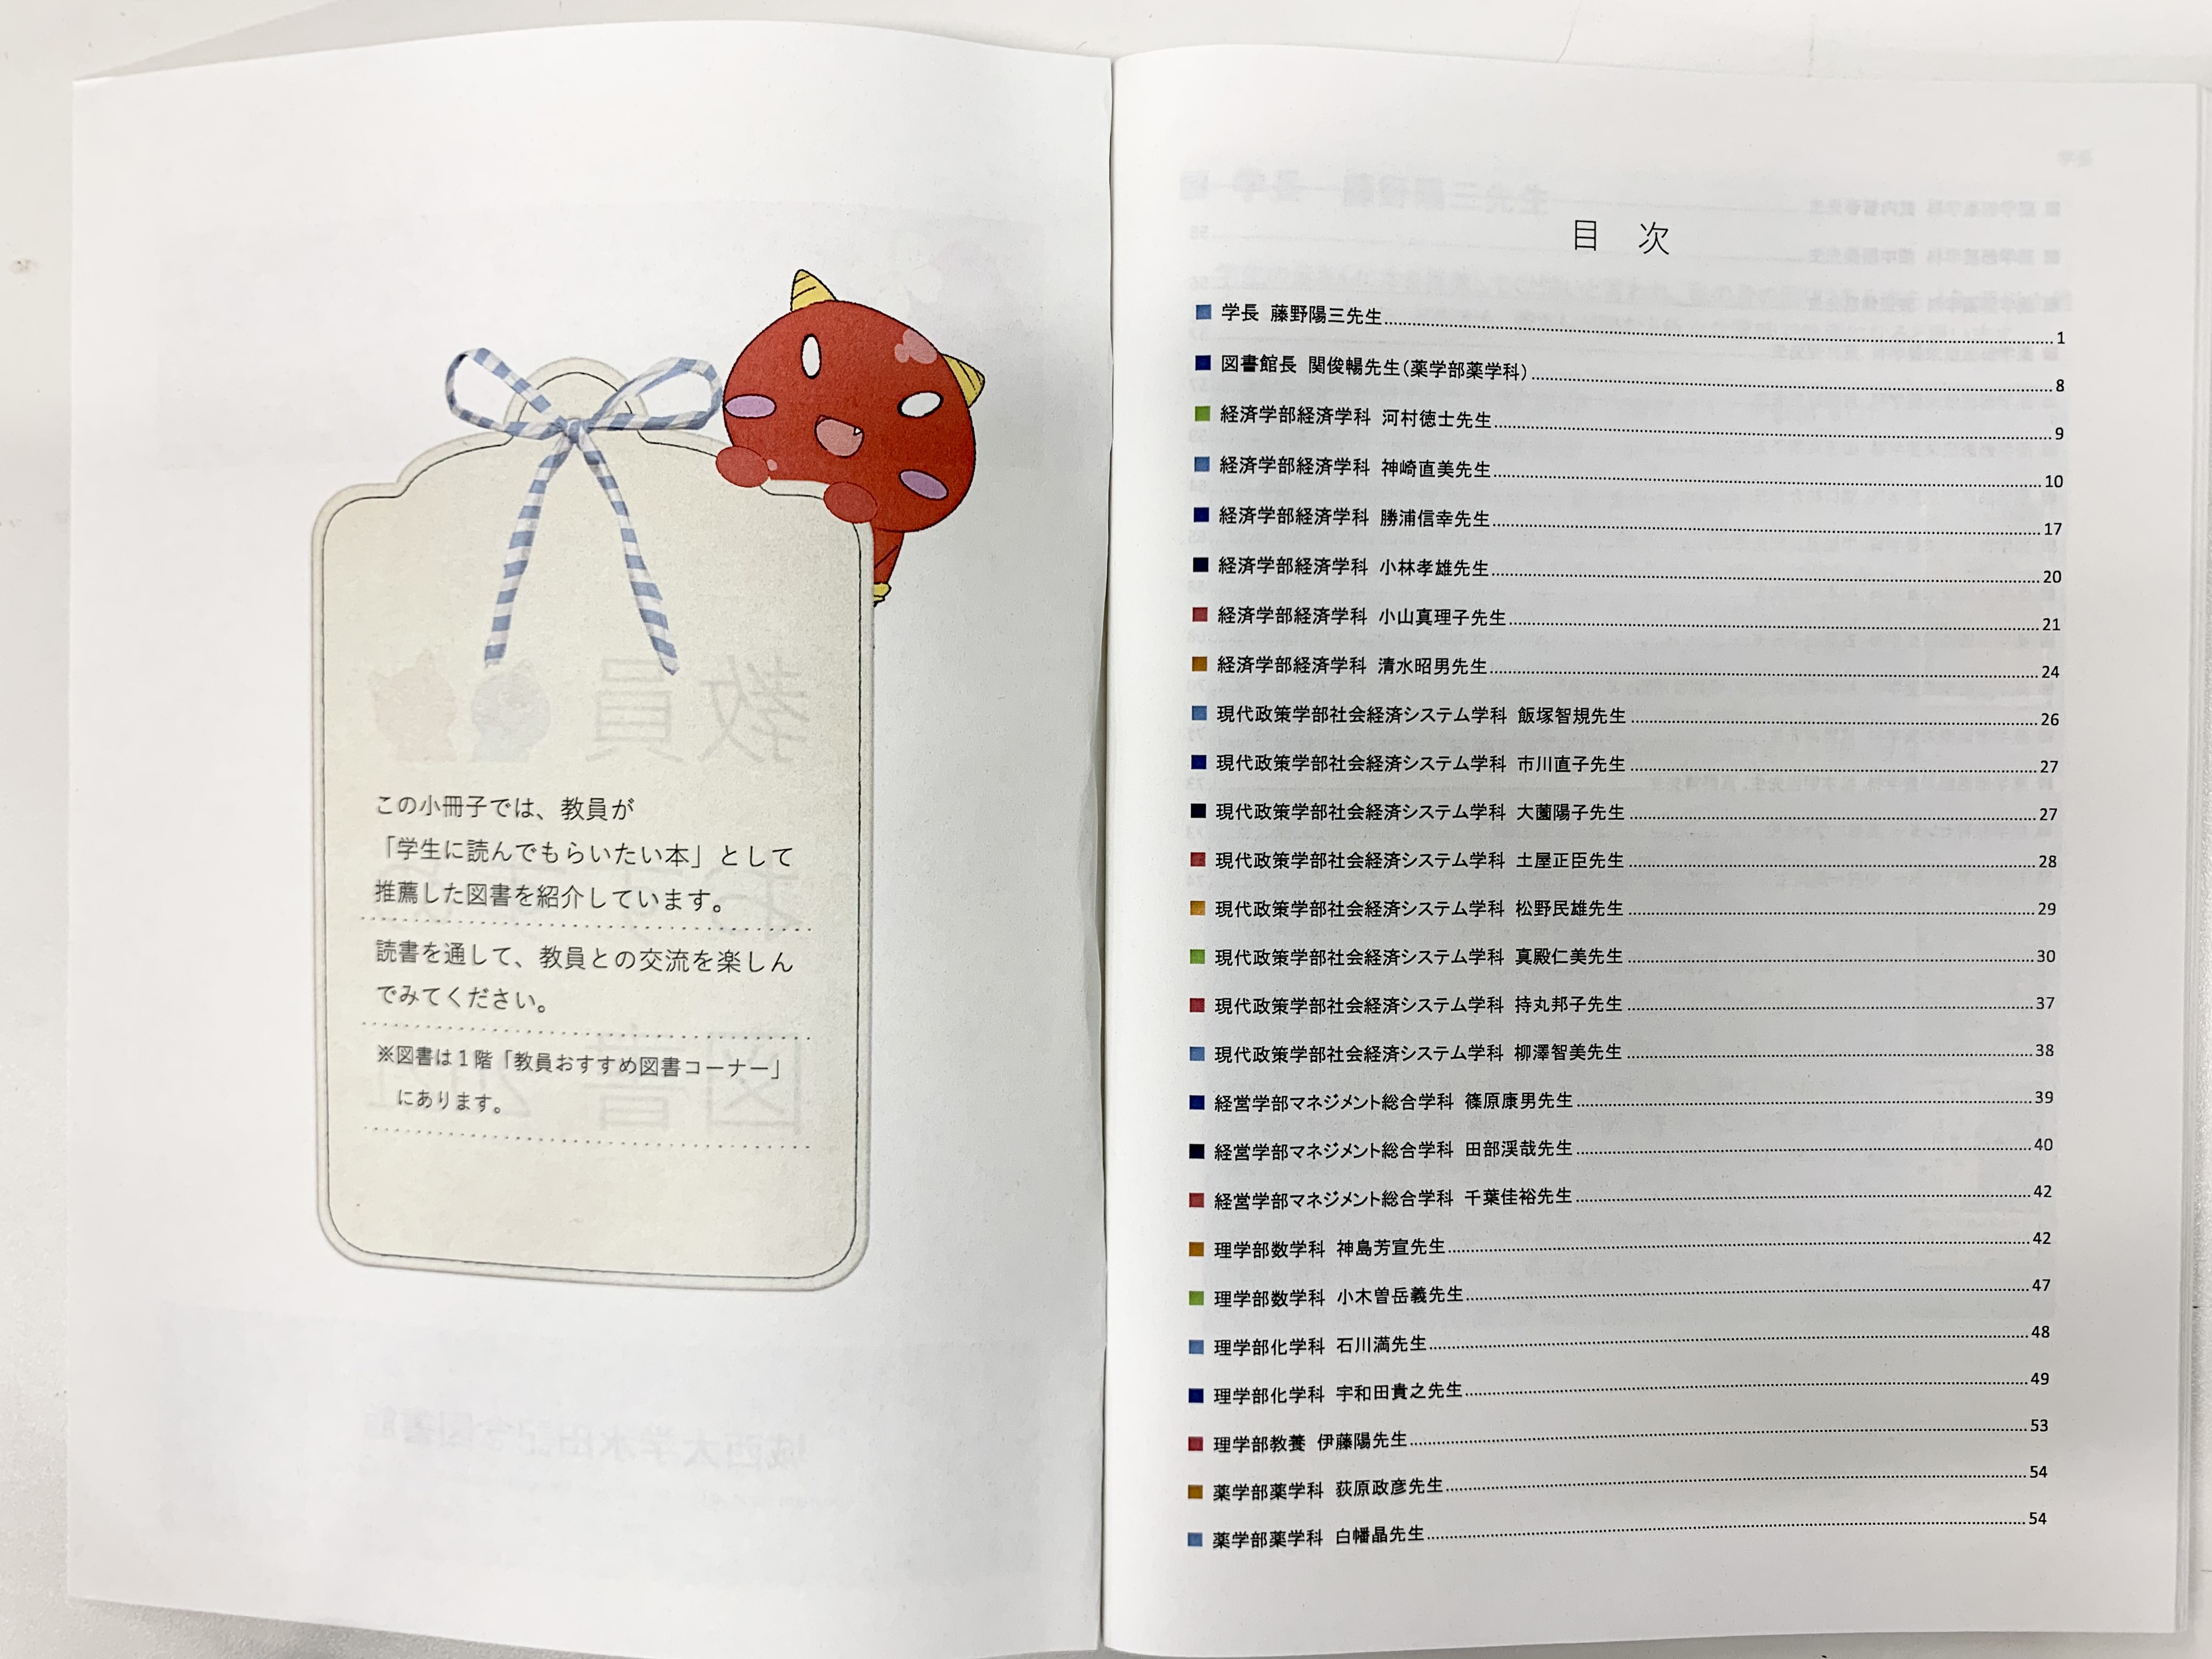 この小冊子では、教員が
「学生に読んでもらいたい本」として
推薦した図書を紹介しています。
読書を通して、教員との交流を楽しん
でみてください。
※図書は１階「教員おすすめ図書コーナー」
にあります。
目 次
学長 藤野陽三先生 1
図書館長 関俊暢先生（薬学部薬学科） 8
経済学部経済学科 河村徳士先生 9
経済学部経済学科 神崎直美先生 10
経済学部経済学科 勝浦信幸先生 17
経済学部経済学科 小林孝雄先生 20
経済学部経済学科 小山真理子先生 21
経済学部経済学科 清水昭男先生 24
現代政策学部社会経済システム学科 飯塚智規先生 26
現代政策学部社会経済システム学科 市川直子先生 27
現代政策学部社会経済システム学科 大薗陽子先生 27
現代政策学部社会経済システム学科 土屋正臣先生 28
現代政策学部社会経済システム学科 松野民雄先生 29
現代政策学部社会経済システム学科 真殿仁美先生 30
現代政策学部社会経済システム学科 持丸邦子先生 37
現代政策学部社会経済システム学科 柳澤智美先生 38
経営学部マネジメント総合学科 篠原康男先生 39
経営学部マネジメント総合学科 田部渓哉先生 40
経営学部マネジメント総合学科 千葉佳裕先生 42
理学部数学科 神島芳宣先生 42
理学部数学科 小木曽岳義先生 47
理学部化学科 石川満先生 48
理学部化学科 宇和田貴之先生 49
理学部教養 伊藤陽先生 53
薬学部薬学科 荻原政彦先生 54
薬学部薬学科 白幡晶先生 54